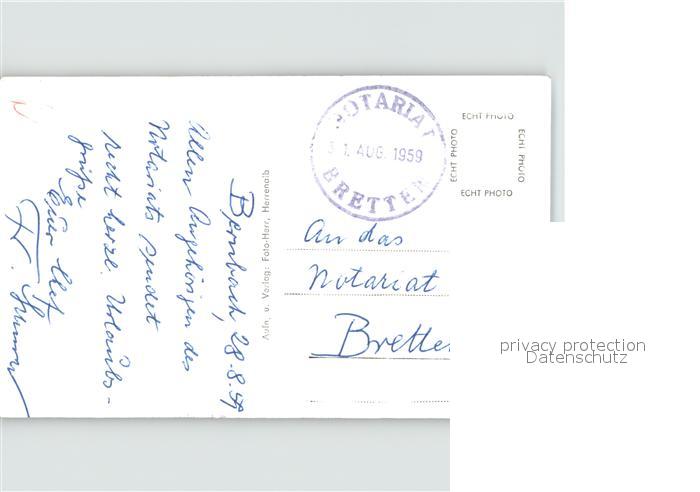 Bernbach, 28.8.59
Allen Angehörigen des
Notariats sendet
recht herzl. Urlaubs-
grüße
Euer
K.
Aufn. u. Verlag: Foto-Herr, Herrenalb
NOTARIAT
31. AUG. 1959
BRETTEN
ECHT PHOTO
ECHT PHOTO
ECHT PHOTO
ECHT PHOTO
An das
Notariat
Brette
privacy protection
Datenschutz